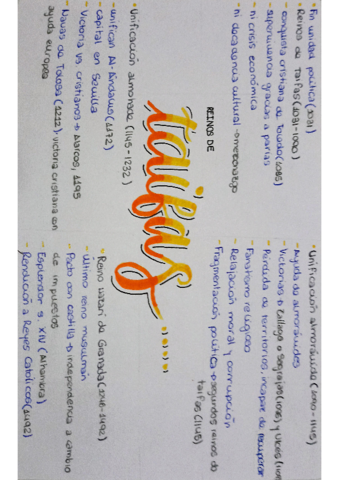 • Fin unidad política (1031)
• Reinos de Taifas (1031-1090)
- conquista cristiana de Toledo (1085)
- supervivencia gracias a parias
- ni crisis económica
- ni decadencia cultural → mecenazgo
• Unificación almorávide (1090-1145)
- Ayuda de almorávides
- Victorias →
- Pérdida de territorios, incapaz de recuperar
- Fanatismo religioso
- Relajación moral y corrupción
- Fragmentación política → segundos reinos de
taifas (1145)
REINOS DE
taifas
• Unificación almohade (1145-1232)
- unifican Al-Andalus (1172)
- capital en Sevilla
- Victoria vs cristianos → Alarcos, 1195
- Navas de Tolosa (1212): victoria cristiana con
ayuda europea
• Reino nazarí de Granada (1246-1492)
- último reino musulmán
- Pacto con Castilla → independencia a cambio
de impuestos
- Esplendor s. XIV (Alhambra)
- Rendición a Reyes Católicos (1492)